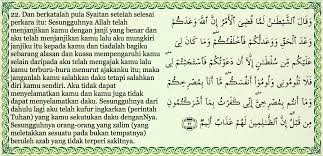 22. Dan berkatalah pula Syaitan setelah selesai
perkara itu: Sesungguhnya Allah telah
menjanjikan kamu dengan janji yang benar dan
aku telah menjanjikan kamu lalu aku mungkiri
janjiku itu kepada kamu dan tiadalah bagiku
sebarang alasan dan kuasa mempengaruhi kamu
selain daripada aku telah mengajak kamu lalu
kamu terburu-buru menurut ajakanku itu; maka
janganlah kamu salahkan daku tetapi salahkan
diri kamu sendiri. Aku tidak dapat
menyelamatkan kamu dan kamu juga tidak
dapat menyelamatkan daku. Sesungguhnya dari
dahulu lagi aku telah kufur ingkarkan (perintah
Tuhan) yang kamu sekutukan daku denganNya.
Sesungguhnya orang-orang yang zalim (yang
meletakkan sesuatu pada bukan tempatnya)
beroleh azab yang tidak terperi sakitnya.
وَقَالَ الشَّيْطَٰنُ لَمَّا قُضِيَ الْأَمْرُ إِنَّ اللَّهَ وَعَدَكُمْ
وَعْدَ الْحَقِّ وَوَعَدتُّكُمْ فَأَخْلَفْتُكُمْ ۖ وَمَا كَانَ لِيَ
عَلَيْكُم مِّن سُلْطَٰنٍ إِلَّا أَن دَعَوْتُكُمْ فَاسْتَجَبْتُمْ لِي ۖ
فَلَا تَلُومُونِي وَلُومُوا أَنفُسَكُم ۖ مَّا أَنَا بِمُصْرِخِكُمْ
وَمَا أَنتُم بِمُصْرِخِيَّ ۖ إِنِّي كَفَرْتُ بِمَا أَشْرَكْتُمُونِ
مِن قَبْلُ ۗ إِنَّ الظَّٰلِمِينَ لَهُمْ عَذَابٌ أَلِيمٌ ۝٢٢